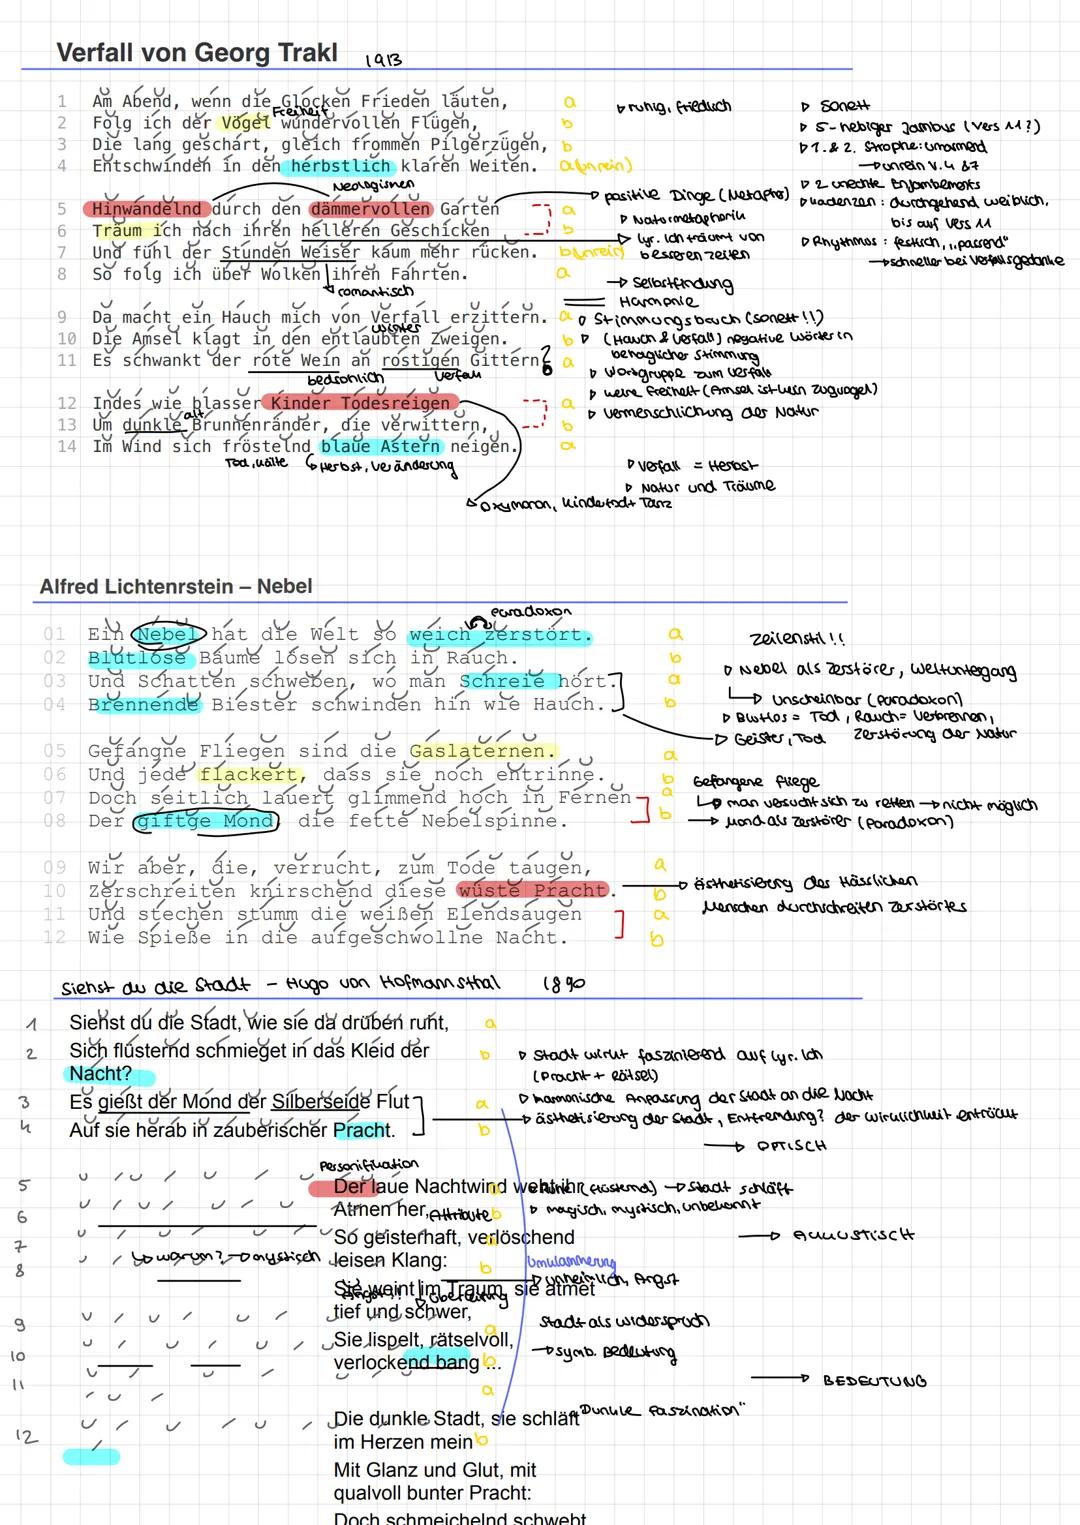 Verfall von Georg Trakl 1913
1 Am Abend, wenn die Glocken Frieden läuten, a ▷ ruhig, friedlich ▷ Sonett
Freiheit
2 Folg ich der Vögel wundervollen Flügen, b ▷ 5-hebiger Jambus (Vers 11?)
3 Die lang geschart, gleich frommen Pilgerzügen, b ▷ 1. & 2. Strophe: umarmend
4 Entschwinden in den herbstlich klaren Weiten. a (unrein) → unrein V. 4 & 7
Neologismen ▷ 2 unechte Enjambements
5 Hinwandelnd durch den dämmervollen Garten a → positive Dinge (Metapher) ▷ Kadenzen: durchgehend weiblich,
▷ Naturmetaphorik bis auf Vers 11
6 Träum ich nach ihren helleren Geschicken b ▷ lyr. Ich träumt von ▷ Rhythmus: festlich, „passend"
7 Und fühl der Stunden Weiser kaum mehr rücken. b (unrein) besseren Zeiten → schneller bei Verfallsgedanke
8 So folg ich über Wolken ihren Fahrten. a → Selbstfindung
romantisch Harmonie
9 Da macht ein Hauch mich von Verfall erzittern. a ▷ Stimmungsbruch (Sonett!!)
Winter
10 Die Amsel klagt in den entlaubten Zweigen. b ▷ (Hauch & Verfall) negative Wörter in
11 Es schwankt der rote Wein an rostigen Gittern, a behaglicher Stimmung
bedrohlich Verfall ▷ Wortgruppe zum Verfall
▷ keine Freiheit (Amsel ist kein Zugvogel)
12 Indes wie blasser Kinder Todesreigen a ▷ Vermenschlichung der Natur
alt
13 Um dunkle Brunnenränder, die verwittern, b
14 Im Wind sich fröstelnd blaue Astern neigen. a
Tod, Kälte Herbst, Veränderung ▷ Verfall = Herbst
▷ Natur und Träume
Oxymoron, Kindertodt Tanz
Alfred Lichtenrstein – Nebel
Paradoxon
01 Ein Nebel hat die Welt so weich zerstört. a Zeilenstil!!
02 Blutlose Bäume lösen sich in Rauch. b ▷ Nebel als Zerstörer, Weltuntergang
03 Und Schatten schweben, wo man Schreie hört. a → Unscheinbar (Paradoxon)
04 Brennende Biester schwinden hin wie Hauch. b ▷ Blutlos = Tod, Rauch = Verbrennen,
→ Geister, Tod Zerstörung der Natur
05 Gefangne Fliegen sind die Gaslaternen. a
06 Und jede flackert, dass sie noch entrinne. b Gefangene Fliege
07 Doch seitlich lauert glimmend hoch in Fernen a → man versucht sich zu retten → nicht möglich
08 Der giftge Mond, die fette Nebelspinne. b → Mond als Zerstörer (Paradoxon)
09 Wir aber, die, verrucht, zum Tode taugen, a
10 Zerschreiten knirschend diese wüste Pracht. b → Ästhetisierung des Hässlichen
11 Und stechen stumm die weißen Elendsaugen a Menschen durchschreiten Zerstörtes
12 Wie Spieße in die aufgeschwollne Nacht. b
Siehst du die Stadt – Hugo von Hofmannsthal 1890
1 Siehst du die Stadt, wie sie da drüben ruht, a
2 Sich flüsternd schmieget in das Kleid der b ▷ Stadt wirkt faszinierend auf lyr. Ich
Nacht? (Pracht + Rätsel)
3 Es gießt der Mond der Silberseide Flut a ▷ harmonische Anpassung der Stadt an die Nacht
4 Auf sie herab in zauberischer Pracht. b → Ästhetisierung der Stadt, Entfremdung? der Wirklichkeit entrückt
→ OPTISCH
Personifikation
5 Der laue Nachtwind weht ihr a (flüsternd) → Stadt schläft
6 Atmen her, Attribute b ▷ magisch, mystisch, unbekannt
7 So geisterhaft, verlöschend a → AKKUSTISCH
8 warum? → mystisch leisen Klang: b Umklammerung
Sie weint im Traum, sie atmet → unheimlich, Angst
tief und schwer,
9 Sie lispelt, rätselvoll, a Stadt als Widerspruch
10 verlockend bang ... b → symb. Bedeutung
11 a → BEDEUTUNG
Die dunkle Stadt, sie schläft „Dunkle Faszination"
12 im Herzen mein b
Mit Glanz und Glut, mit
qualvoll bunter Pracht:
Doch schmeichelnd schwebt